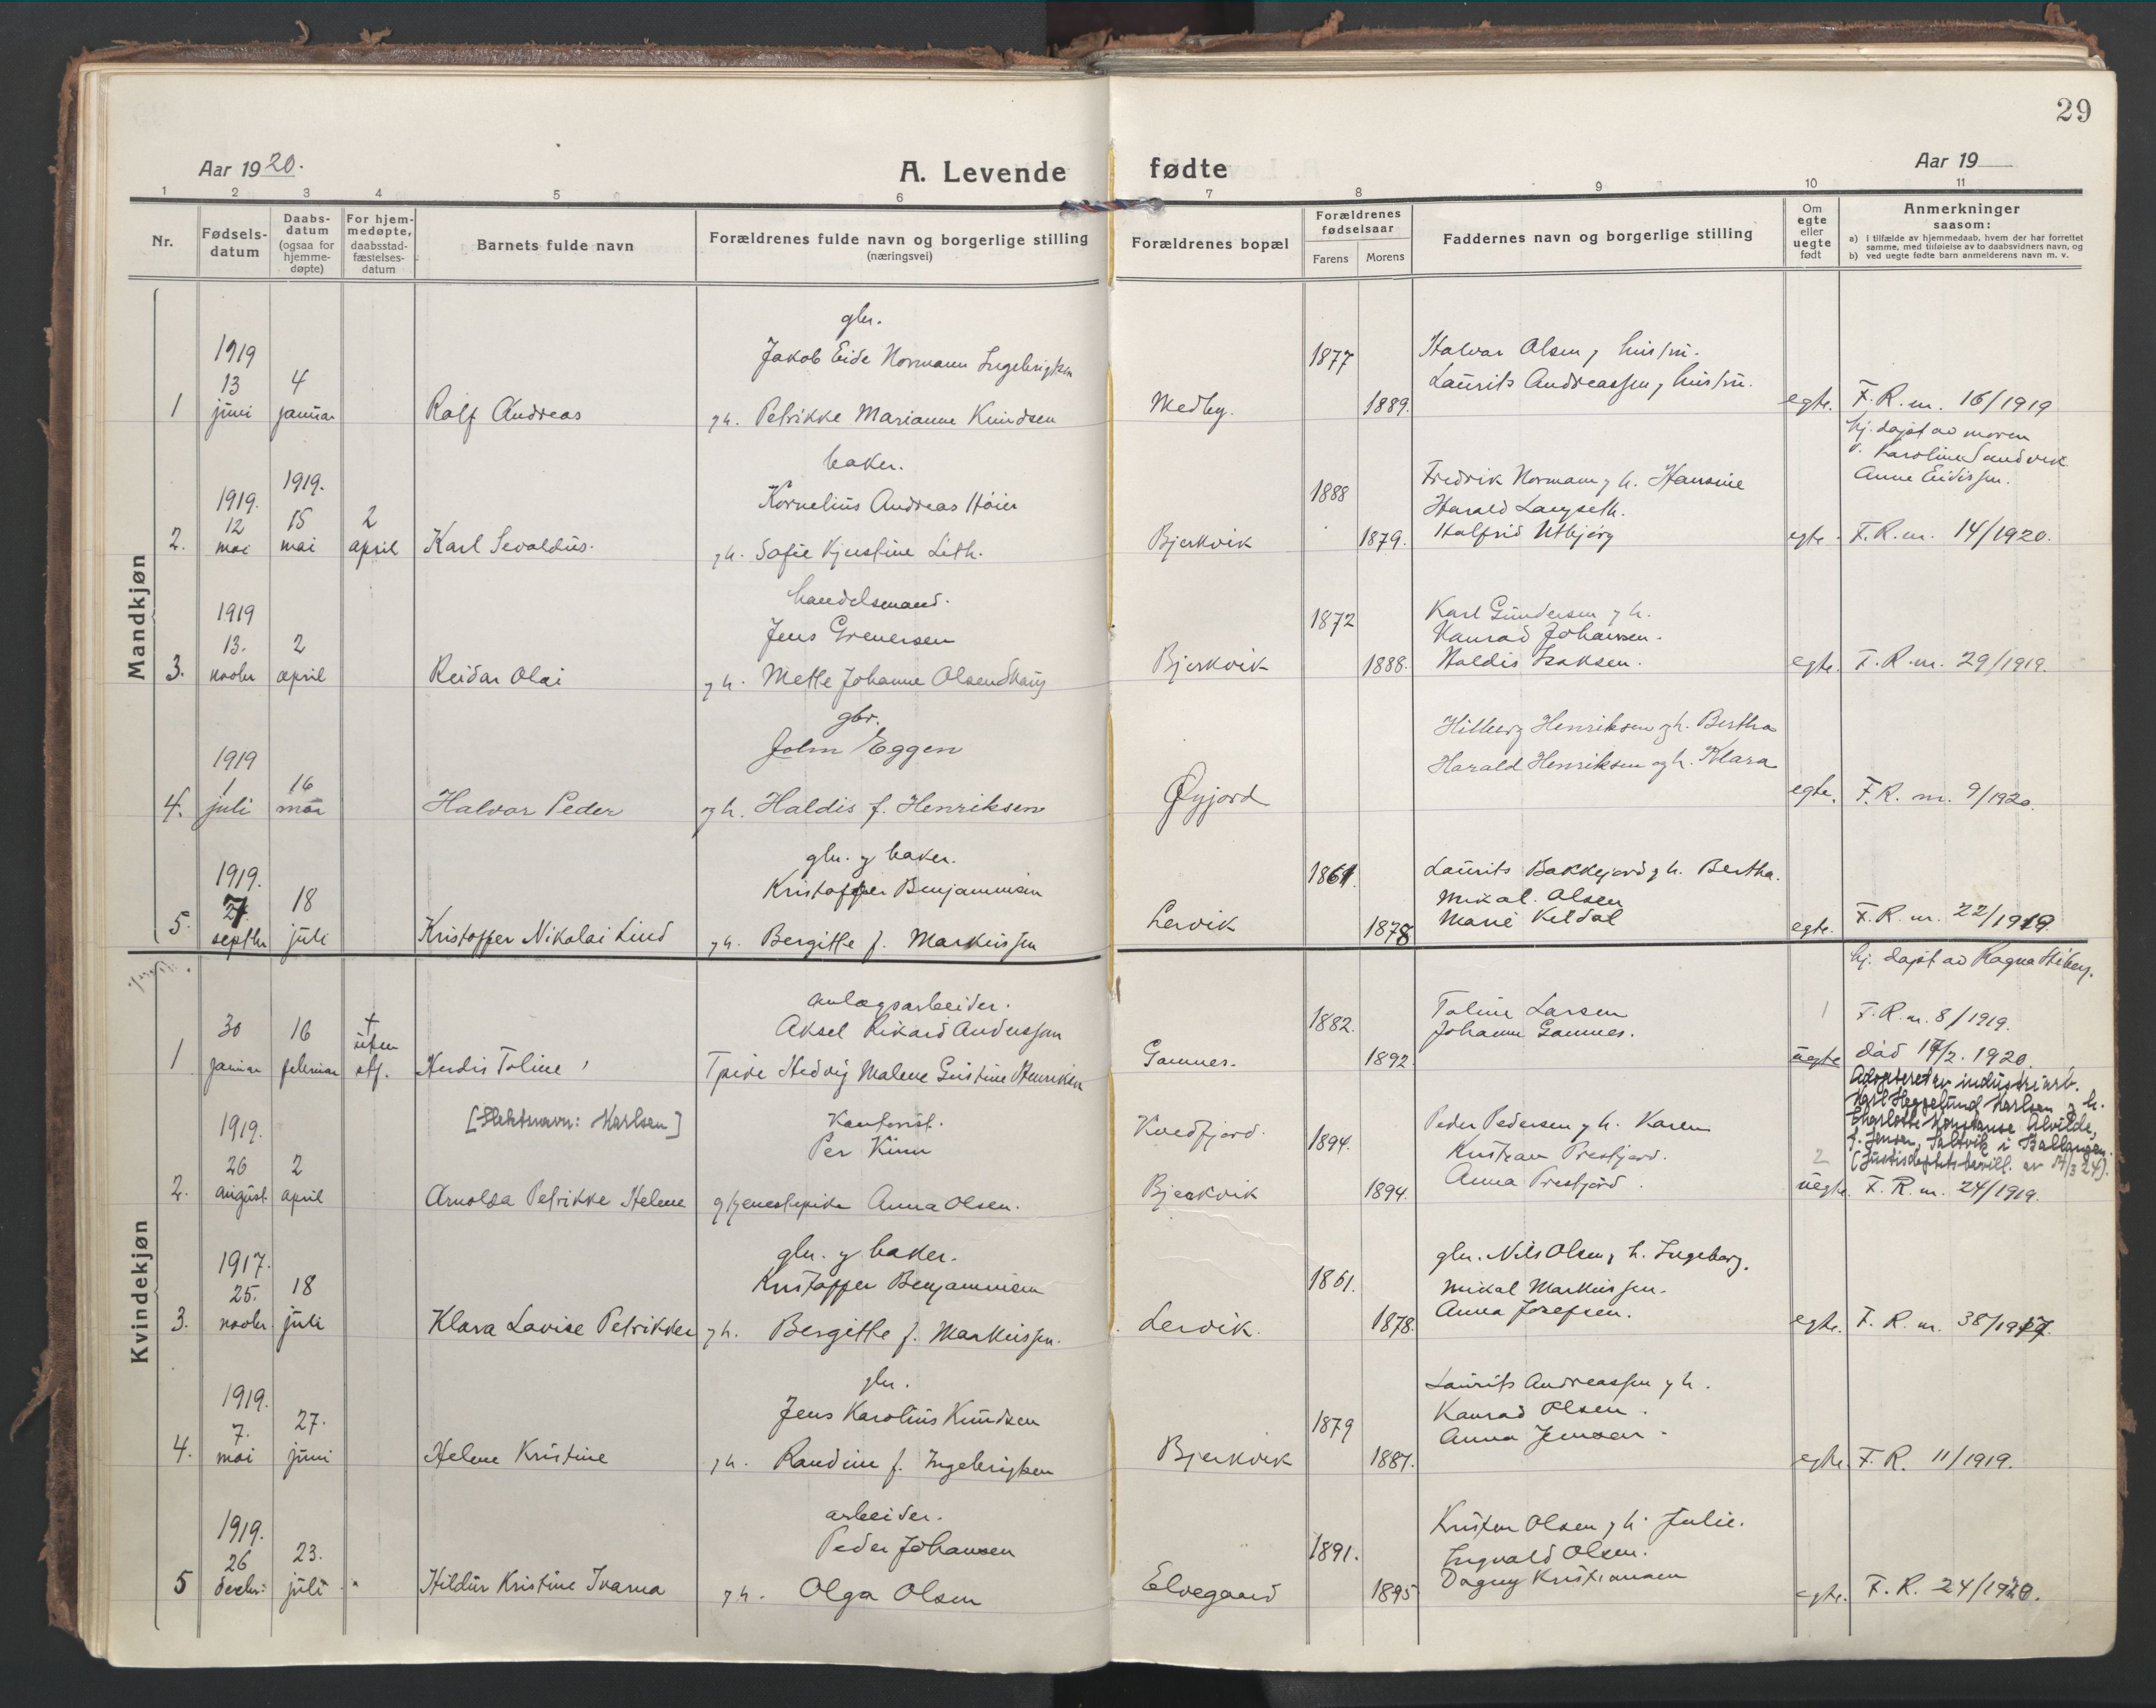 29
Aar 1920.
A. Levende
fødte
Aar 19
1 2 3 4 5 6 7 8 9 10 11
Nr.
Fødsels-
datum
Daabs-
datum
(ogsaa for
hjemme-
døpte)
For hjem-
medøpte,
daabsstad-
fæstelses-
datum
Barnets fulde navn
Forældrenes fulde navn og borgerlige stilling
(næringsvei)
Forældrenes bopæl
Forældrenes
fødselsaar
Farens
Morens
Faddernes navn og borgerlige stilling
Om
egte
eller
uegte
født
Anmerkninger
saasom:
a) i tilfælde av hjemmedaab, hvem der har forrettet
samme, med tilføielse av to daabsvidners navn, og
b) ved uegte fødte barn anmelderens navn m. v.
Mandkjøn
1
1919
13
juni
4
januar
Ralf Andreas
gbr.
Jakob Eide Normann Ingebrigtsen
g h. Petrikke Marianne Knudsen
Medby.
1877
1889.
Halvar Olsen g hustru.
Laurits Andreassen g hustru.
egte.
F. R. nr. 16/1919
2.
1919.
12
mai
1919.
15
mai
2
april
Karl Sevaldus.
baker.
Kornelius Andreas Høier
g h. Sofie Kjerstine Leth.
Bjerkvik
1888
1879.
Fredrik Normann g h. Hansine
Harald Langseth.
Halfrid Utbjörg
egte.
hj. døpt av moren
v. Karoline Sandvik
Anne Eidissen.
F. R. nr. 14/1920.
3.
1919
13.
novbr
2
april
Reidar Olai
handelsmand.
Jens Grenersen
g h. Mette Johanne Olsen
Bjerkvik
1872
1888.
Karl Gundersen g h.
Konrad Johansen.
Haldis Isaksen.
egte.
F. R. nr. 29/1919.
4.
1919
1
juli
16
mai
Halvar Peder
gbr.
John Eggen
og h. Haldis f. Henriksen
Øyjord
Hilberg Henriksen og h. Bertha
Harald Henriksen og h. Klara
egte.
F. R. nr. 9/1920.
5.
1919.
septbr
18
juli
Kristoffer Nikolai Lind
gbr. g baker.
Kristoffer Benjaminsen
g h. Bergitte f. Markussen
Lervik
1861.
1878
Laurits Bakkejord g h. Bertha.
Mikal Olsen
Marie Kildal
egte.
F. R. nr. 22/1919.
Kvindekjøn
1
30
januar
16
februar
†
uten
stf.
Herdis Toline
anlægsarbeider.
Aksel Rikard Anderssen
T pike Hedvig Malene Gustine Henriksen
Gamnes.
1882.
1892
Toline Larsen
Johanne Gamnes.
1
uegte
hj. døpt av Ragna
F. R. nr. 8/1919.
død 17/2. 1920.
2.
1919.
26
august
2
april
[Slektsnavn: Karlsen]
Arnolda Petrikke Helene
Kontorist.
Per Kinn
g tjenestepike Anna Olsen.
Kvedfjord.
Bjerkvik
1894.
1894.
Peder Pedersen g h. Karen
Kristian Prestjord.
Anna Prestjord.
2
uegte.
Adopteret av industriarb.
Karl Heggelund Karlsen g h.
Charlotte Konstanse Alvilde,
f. Jensen, Saltvik i Ballangen.
(Justisdeptets bevill. av 14/3 24).
F. R. nr. 24/1919.
3.
1917.
25.
novbr
18
juli
Klara Lovise Petrikke
gbr. g baker.
Kristoffer Benjaminsen
g h. Bergitte f. Markussen.
Lervik.
1861.
1878.
gbr. Nils Olsen g h. Ingeborg.
Mikal Markussen.
Anna Josefsen.
egte.
F. R. nr. 38/1917.
4.
1919.
7.
mai
27.
juni
Helene Kristine
gbr.
Jens Karolius Knudsen
g h. Raudine f. Ingebrigtsen
Bjerkvik
1879
1887.
Laurits Andreassen g h.
Konrad Olsen.
Anna Jensen.
egte.
F. R. 11/1919.
5
1919.
26
decbr:
23.
juli
Hildur Kristine Ivarna
arbeider.
Peder Johansen
g h. Olga Olsen
Elvegaard
1891.
1895
Kristen Olsen g h. Julie.
Ingvald Olsen.
Dagny Kristiansen
egte.
F. R. 24/1920.